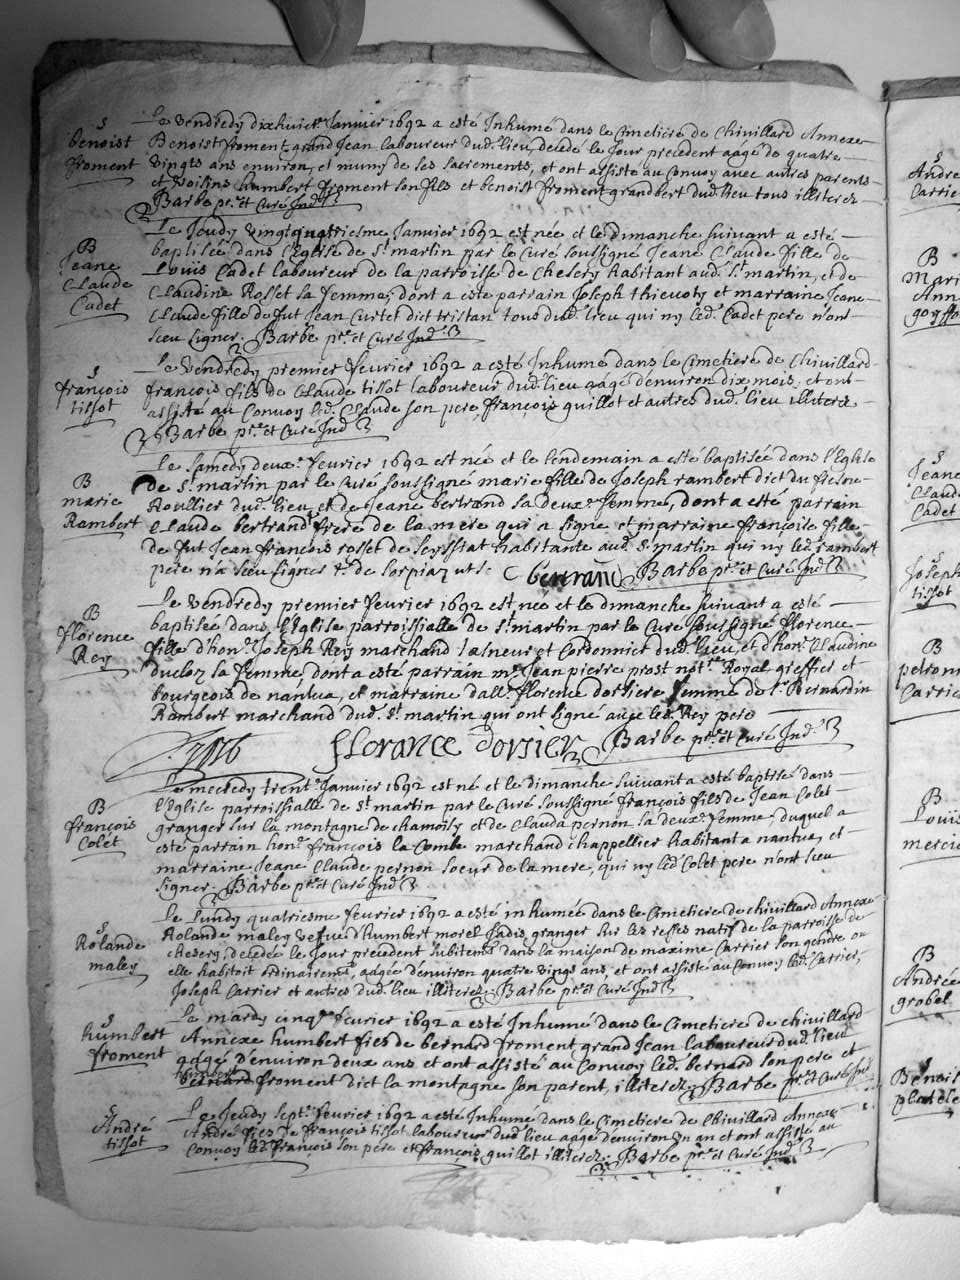 S
benoist
froment
Le vendredy dixhuict.e Janvier 1692 a esté Inhumé dans le Cimetiere de Chivillard Annexe
Benoist froment grand Jean laboureur dud. lieu, decedé le Jour precedent aagé de quatre
vingts ans environ, et muny de ses sacrements, et ont assisté au Convoy avec autres parents
et voisins humbert froment son fils et benoist froment grandbert dud. lieu tous illiterez
Barbe pr.e et Curé Ind.
B
Jeane
Claude
Cadet
Le Jeudy vingtquatriesme Janvier 1692 est née et le dimanche suivant a esté
baptisée dans l'Eglise de St. martin par le Curé soussigné Jeane Claude fille de
Louis Cadet laboureur de la parroisse de Chesery habitant aud. St. martin, et de
Claudine Rosset sa femme, dont a esté parrain Joseph thievoty et marraine Jeane
Claude fille de fut Jean Curtet dict tristan tous dud. lieu qui ny led. Cadet pere n'ont
sceu signer. Barbe pr.e et Curé Ind.
S
françois
tissot
Le vendredy premier fevrier 1692 a esté Inhumé dans le Cimetiere de Chivillard
françois fils de Claude tissot laboureur dud. lieu aagé d'environ dix mois, et ont
assisté au Convoy led. Claude son pere, françois guillot et autres dud. lieu illiterez
Barbe pr.e et Curé Ind.
B
marie
Rambert
Le samedy deux.e fevrier 1692 est née et le lendemain a esté baptisée dans l'Eglise
de St. martin par le Curé soussigné marie fille de Joseph rambert dict du fresne
Roullier dud. lieu, et de Jeane bertrand sa deux.e femme, dont a esté parrain
Claude bertrand frere de la mere qui a signé et marraine françoise fille
de fut Jean françois rosset de seyssiat habitante aud. St. martin qui ny led. rambert
pere n'a sceu signer
C bertrand Barbe pr.e et Curé Ind.
B
florence
Rey
Le vendredy premier fevrier 1692 est née et le dimanche suivant a esté
baptisée dans l'Eglise parroissialle de St. martin par le Curé soussigné florence
fille d'hon. Joseph Rey marchand taneur et Cordonnier dud. lieu, et d'hon. Claudine
duclos sa femme, dont a esté parrain m.e Jean pierre prost not.re Royal greffier et
bourgeois de nantua, et marraine dall.e florence dorsiere femme de Sr. Bernardin
Rambert marchand dud. St. martin qui ont signé avec led. Rey pere
florance dorsier Barbe pr.e et Curé Ind.
B
françois
Colet
Le mecredy trent.e Janvier 1692 est né et le dimanche suivant a esté baptisé dans
l'Eglise parroissialle de St. martin par le Curé soussigné françois fils de Jean Colet
granger sur la montagne de chamoisy et de Clauda pernon sa deux.e femme, duquel a
esté parrain hon. françois la Combe marchand chappellier habitant a nantua, et
marraine Jeane Claude pernon soeur de la mere, qui ny led. Colet pere n'ont sceu
signer. Barbe pr.e et Curé Ind.
S
Rolande
maley
Le Lundy quatriesme fevrier 1692 a esté inhumée dans le Cimetiere de chivillard Annexe
Rolande maley vefve d'humbert morel Jadis granger sur les natif de la parroisse de
chesery, decedée le Jour precedent subitem.t dans la maison de maxime Carrier son gendre ou
elle habitoit ordinairem.t, aagée d'environ quatre vingt ans, et ont assisté au Convoy led. Carrier,
Joseph Carrier et autres dud. lieu illiterez. Barbe pr.e et Curé Ind.
S
humbert
froment
Le mardy cinq.e fevrier 1692 a esté Inhumé dans le Cimetiere de chivillard
Annexe humbert fils de bernard froment grand Jean laboureur dud. lieu
aagé d'environ deux ans et ont assisté au Convoy led. bernard son pere et
humbert
bernard froment dict la montagne son parent, illiterez. Barbe pr.e et Curé Ind.
S
André
tissot
Le Jeudy sept.e fevrier 1692 a esté Inhumé dans le Cimetiere de Chivillard Annexe
André fils de françois tissot laboureur dud. lieu aagé d'environ un an et ont assisté au
Convoy led. françois son pere et françois guillot illiterez. Barbe pr.e et Curé Ind.
S
André
Carrie
B
Mari
Anne
goyffo
S
Jeane
Claude
Cadet
S
Joseph
tissot
B
petron
Carrie
B
Louis
mercie
B
Andrée
grobel
S
Benois